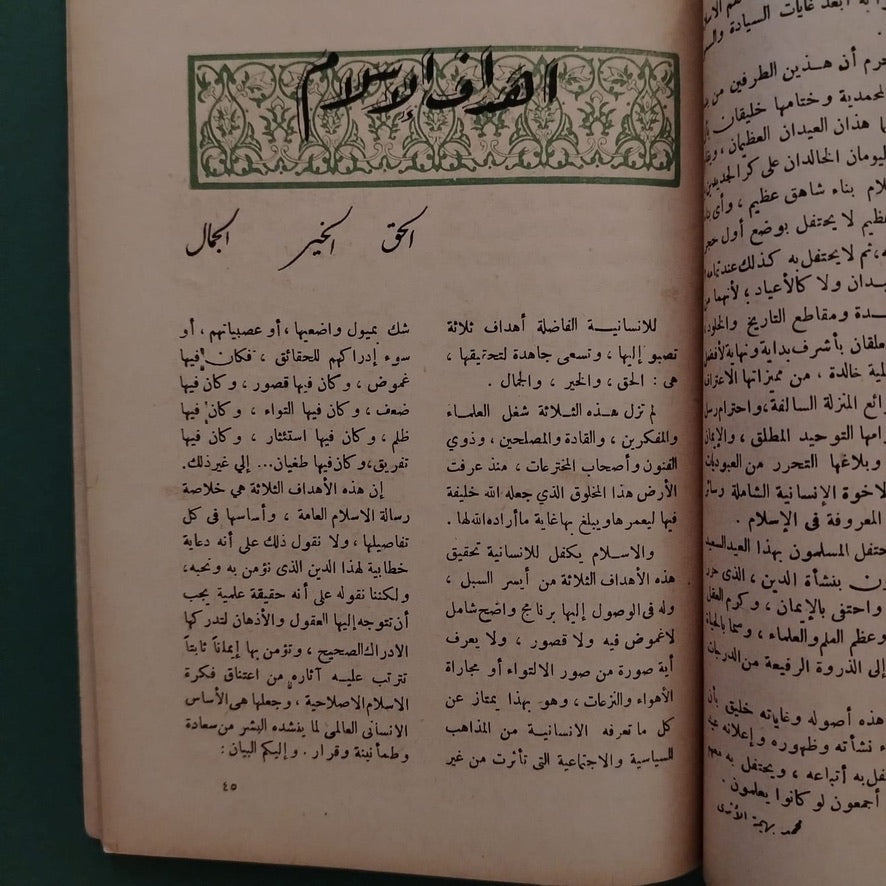 اهداف الإسلام
الحق الخير الجمال
للانسانيـــة الفاضلة أهداف ثلاثة
تصبو إليها ، وتسعى جاهدة لتحقيقها ،
هى : الحق ، والخير ، والجمال .
لم تزل هـــذه الثـــلاثة شغل العلماء
والمفكرين ، والقادة والمصلحين ، وذوي
الفنون وأصحاب المخترعات ، منذ عرفت
الأرض هذا المخلوق الذي جعله الله خليفة
فيها ليعمرها ويبلغ بها غاية ما أراده الله لها .
والاســلام يكفل للانسانية تحقيق
هذه الأهداف الثلاثة من أيسر السبل ،
وله فى الوصول إليها برنامج واضح شامل
لا غموض فيه ولا قصور ، ولا يعرف
أية صورة من صور الالتواء أو مجاراة
الأهواء والنزعات ، وهو بهذا يمتاز عن
كل ما تعرفه الانسانية من المذاهب
السياسية والاجتماعية التى تأثرت من غير
شك بميول واضعيها ، أو عصبياتهم ، أو
سوء إدراكهم للحقائق ، فكان فيها
غموض ، وكان فيها قصور ، وكان فيها
ضعف ، وكان فيها التواء ، وكان فيها
ظلم ، وكان فيها استئثار ، وكان فيها
تفريق ، وكان فيها طغيان... إلي غير ذلك.
إن هذه الأهداف الثلاثة هي خلاصة
رسالة الاسلام العامة ، وأساسها فى كل
تفاصيلها ، ولا نقول ذلك على أنه دعاية
خطابية لهذا الدين الذى نؤمن به ونحبه ،
ولكننا نقوله على أنه حقيقة علمية يجب
أن نتوجه إليها العقول والأذهان لتدركها
الادراك الصحيح ، وتؤمن بها إيماناً ثابتاً
تترتب عليـــه آثاره من اعتناق فكرة
الاسلام الاصلاحية ، وجعلها هى الأساس
الانسانى العالمى لما ينشده البشر من سعادة
وطمأنينة وقرار . وإليكم البيان :
٤٥
أبعد غايات السيادة
جرم أن هـــذين الطرفين من
المحمدية وختامها خليقان
هذان العيدان العظيمان ،
اليومان الخالدان على كرّ الجديدين
بناء شاهق عظيم ، وأى
عظيم لا يحتفل بوضع أول حجر
ثم لا يحتفل به كذلك عند تمامه
ولا كالأعياد ؛ لأنهما من
ومقاطع التاريخ والخلود
بأشرف بداية ونهاية لأفضل
خالدة ، من مميزاتها الاعتراف
المنزلة السالفة ، واحترام رسل
التوحيد المطلق ، والإيمان
وبلاغها التحرر من العبوديات
الاخوة الإنسانية الشاملة
المعروفة فى الإسلام .
المسلمون بهذا العيد السعيد
بنشأة الدين ، الذى حرر
واحتفى بالإيمان ، وكرم العقل
وعظم العلم والعلماء ، وسما بالحياة
إلى الذروة الرفيعة من الدرجات
هذه أصوله وغاياته خليق بأن
نشأته وظهوره وإعلانه
به أتباعه ، ويحتفل به معهم
أجمعون لو كانوا يعلمون .
محمد بهجة الأثرى